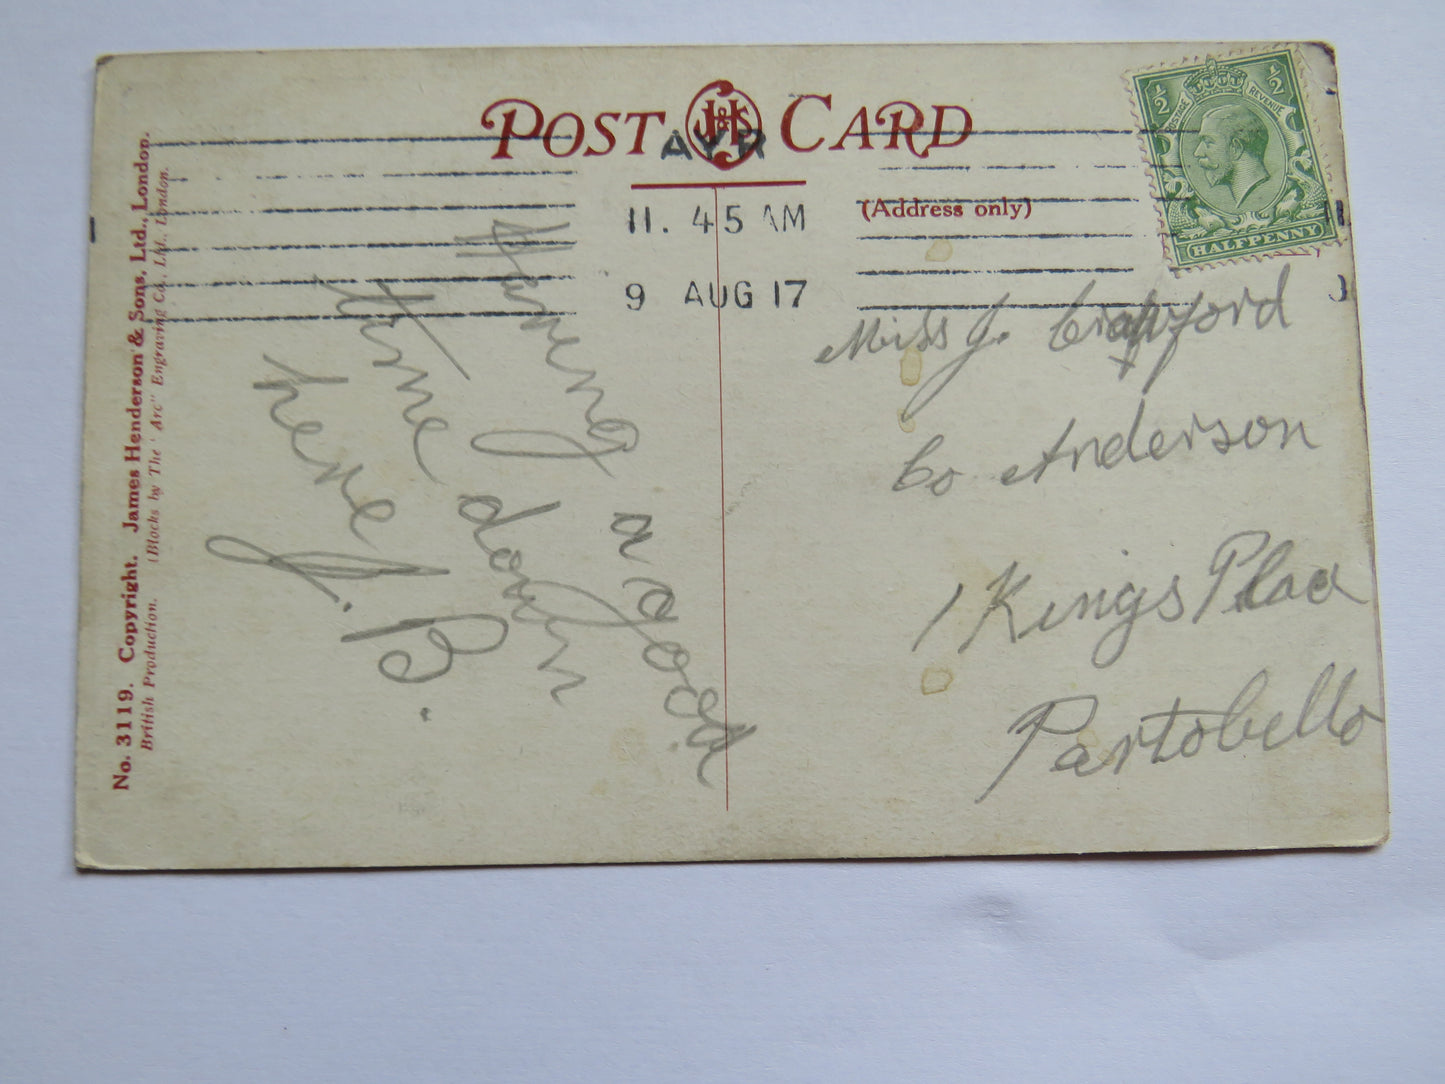 POST J&HS CARD
AYR
11. 45 AM
9 AUG 17
(Address only)
½ ½
POSTAGE REVENUE
HALFPENNY
No. 3119. Copyright. James Henderson & Sons, Ltd., London.
British Production. (Blocks by The "Arc" Engraving Co., Ltd., London.
Having a good
time down
here
J. B.
Miss J. Crawford
Co Anderson
1 Kings Place
Partobello